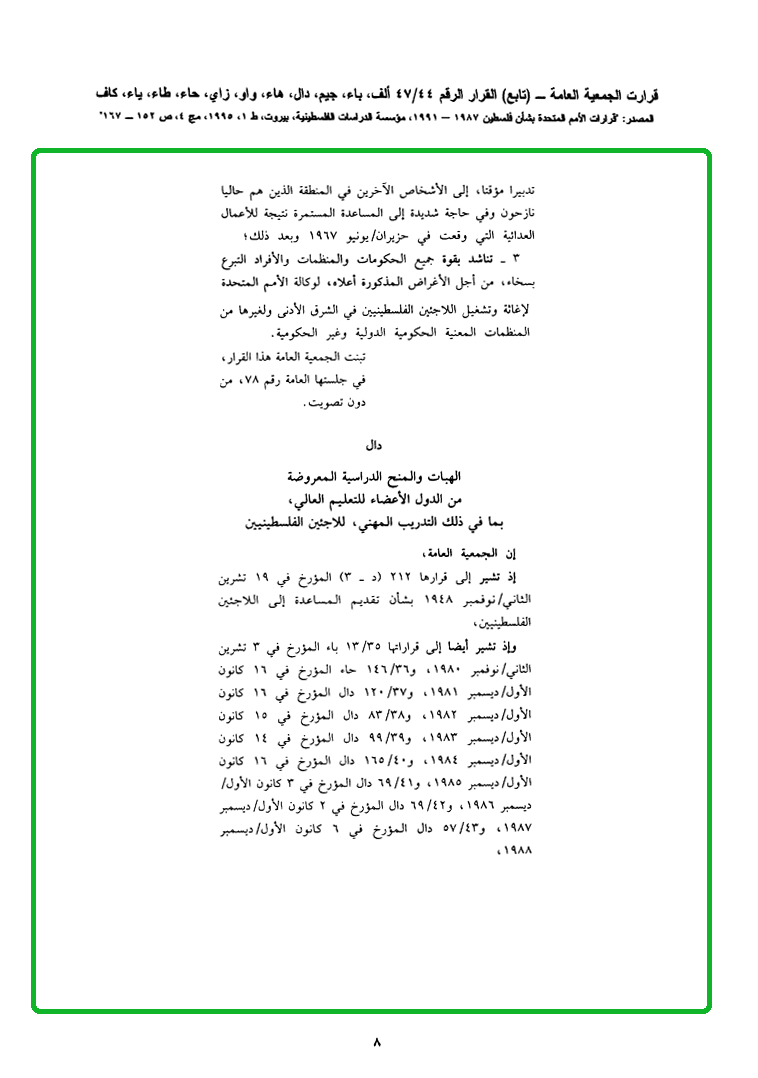 قرارت الجمعية العامة ــ (تابع) القرار الرقم ٤٧/٤٤ ألف، باء، جيم، دال، هاء، واو، زاي، حاء، طاء، ياء، كاف
المصدر: "قرارات الأمم المتحدة بشأن فلسطين ١٩٨٧ – ١٩٩١، مؤسسة الدراسات الفلسطينية، بيروت، ط ١، ١٩٩٥، مج ٤، ص ١٥٢ – ١٦٧"
تدبيرا مؤقتا، إلى الأشخاص الآخرين في المنطقة الذين هم حاليا
نازحون وفي حاجة شديدة إلى المساعدة المستمرة نتيجة للأعمال
العدائية التي وقعت في حزيران/يونيو ١٩٦٧ وبعد ذلك؛
٣ ـ تناشد بقوة جميع الحكومات والمنظمات والأفراد التبرع
بسخاء، من أجل الأغراض المذكورة أعلاه، لوكالة الأمم المتحدة
لإغاثة وتشغيل اللاجئين الفلسطينيين في الشرق الأدنى ولغيرها من
المنظمات المعنية الحكومية الدولية وغير الحكومية.
تبنت الجمعية العامة هذا القرار،
في جلستها العامة رقم ٧٨، من
دون تصويت.
دال
الهبات والمنح الدراسية المعروضة
من الدول الأعضاء للتعليم العالي،
بما في ذلك التدريب المهني، للاجئين الفلسطينيين
إن الجمعية العامة،
إذ تشير إلى قرارها ٢١٢ (د ـ ٣) المؤرخ في ١٩ تشرين
الثاني/نوفمبر ١٩٤٨ بشأن تقديم المساعدة إلى اللاجئين
الفلسطينيين،
وإذ تشير أيضا إلى قراراتها ١٣/٣٥ باء المؤرخ في ٣ تشرين
الثاني/نوفمبر ١٩٨٠، و١٤٦/٣٦ حاء المؤرخ في ١٦ كانون
الأول/ديسمبر ١٩٨١، و١٢٠/٣٧ دال المؤرخ في ١٦ كانون
الأول/ديسمبر ١٩٨٢، و٨٣/٣٨ دال المؤرخ في ١٥ كانون
الأول/ديسمبر ١٩٨٣، و٩٩/٣٩ دال المؤرخ في ١٤ كانون
الأول/ديسمبر ١٩٨٤، و١٦٥/٤٠ دال المؤرخ في ١٦ كانون
الأول/ديسمبر ١٩٨٥، و٦٩/٤١ دال المؤرخ في ٣ كانون الأول/
ديسمبر ١٩٨٦، و٦٩/٤٢ دال المؤرخ في ٢ كانون الأول/ديسمبر
١٩٨٧، و٥٧/٤٣ دال المؤرخ في ٦ كانون الأول/ديسمبر
١٩٨٨،
٨